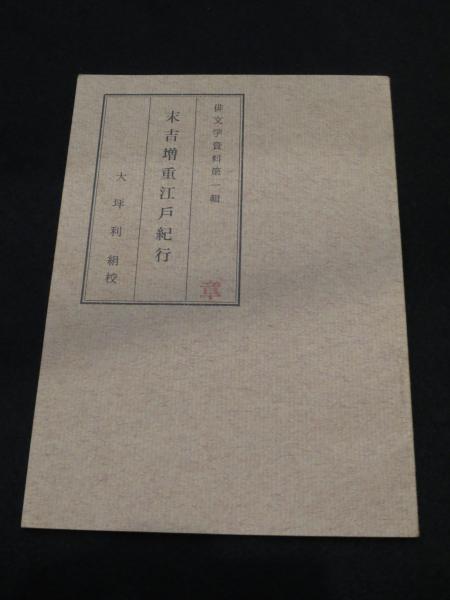 俳文学資料第一輯
末吉増重江戸紀行
大坪利絹校
章